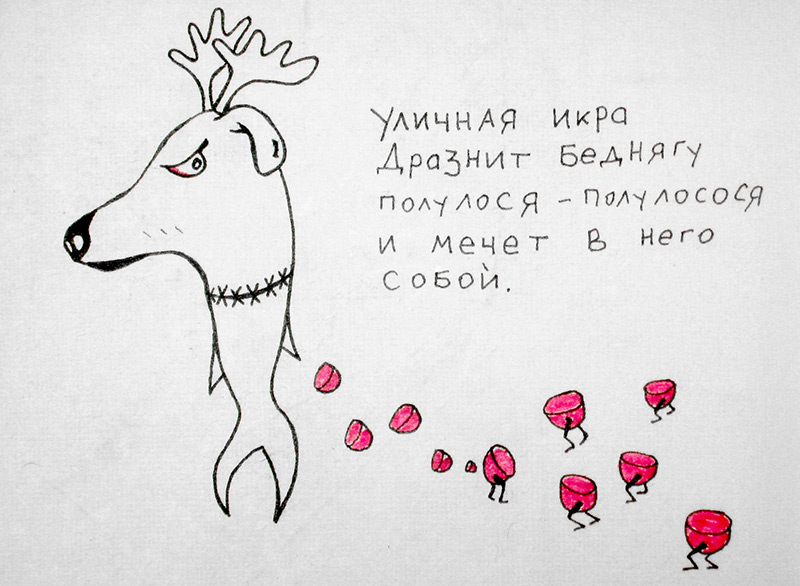 уличная икра
дразнит беднягу
полулося - полулосося
и мечет в него
собой.